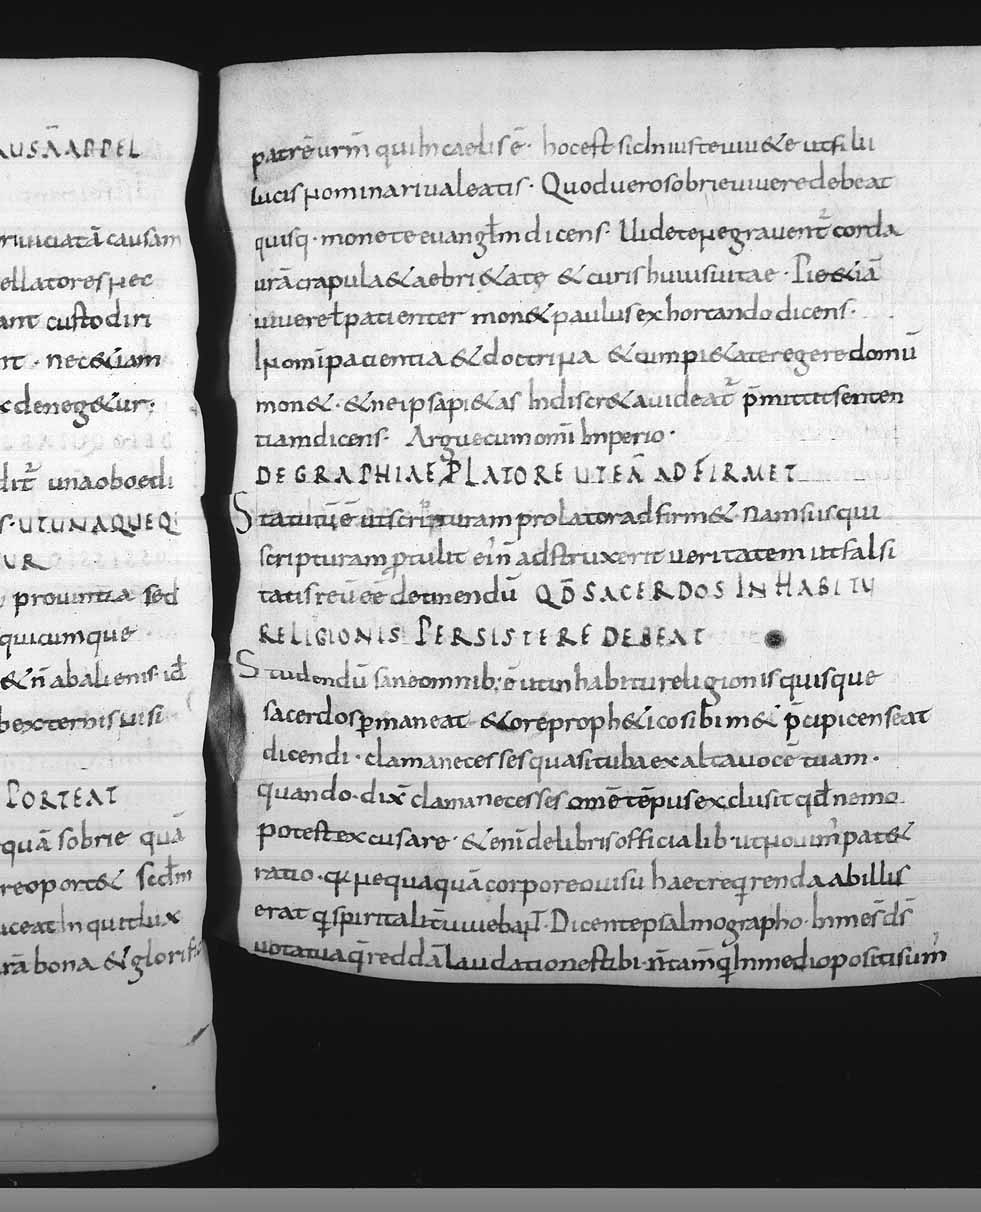 AUSĀ APPEL
causam
ellatores nec
ant custodiri
nt · nec &iam
deneg&ur;
unaoboedi
S·UTUNAQUEQ
UR
prouintia sed
quicumque
& n̄ abalienis id̄
bexternis uisi
PORTEAT
quā sobrie quā
reoport& scd̄m
uceat In quit lux
rā bona & glorifi
patrē urm̄ qui In caelis ē · hoc est sic In iuste uiu&e ut filii
lucis nominari ualeatis · Quod uero sobrie uiuere debeat
quisq · monet e euangł̄m dicens · Uidete ne grauent̄ corda
urā crapula & aebri&ate & curis huius uitae · Pie &iā
uiuere ł patienter mon& paulus exhortando dicens ·
In omī patientia & doctrina & cum pi&ate regere domū
mon& · & ne ipsa pi&as Indiscr&a uideat̄ p̄mittit senten
tiam dicens · Argue cum omī Imperio ·
DE GRAPHIAE PLATORE UT EĀ ADFIRMET
Statutū ē ut scripturam prolator adfirm& · Nam si is qui
scripturam ptulit eī n̄ adstruxerit ueritatem ut falsi
tatis reū eē detinendū QD̄ SACERDOS IN HABITU
RELIGIONIS PERSISTERE DEBEAT
Studendū sane omnib; ē ut in habitu religionis quisque
sacerdos pmaneat & ore proph&ico sibim& p̄cipi censeat
dicendi · clama ne cesses quasi tuba exalta uocē tuam ·
quando · dix̄ clama ne cesses omē tēpus exclusit qd̄ nemo
potest excusare · & enī de libris officialib · ut nouim̄ pat&
ratio · q nequaquā corporeo uisu haec req̄renda ab illis
erat q spiritalit̄ uiuebant · Dicente psalmographo · In me s̄ ds̄
uota tua q̄ reddā laudationes tibi · n̄ tam q̄ In medio positi sum̄